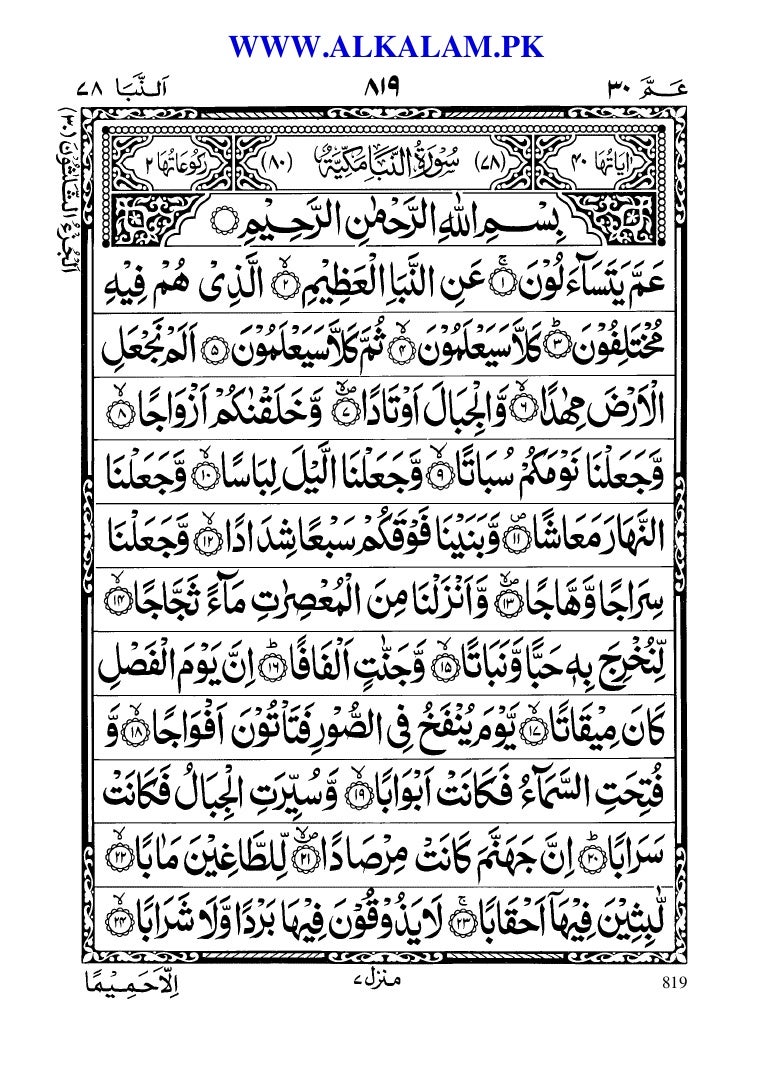 WWW.ALKALAM.PK
عَمَّ ٣٠ ٨١٩ اَلنَّبَا ٧٨
اَلْجُزْءُ الثَّلَاثُوْنَ (٣٠)
اٰيَاتُهَا ٤٠ (٧٨) سُوْرَةُ النَّبَاِ مَكِّيَّةٌ (٨٠) رُكُوْعَاتُهَا ٢
بِسْمِ اللّٰهِ الرَّحْمٰنِ الرَّحِيْمِ
عَمَّ يَتَسَآءَلُوْنَ ۚ‏﴿١﴾ عَنِ النَّبَاِ الْعَظِيْمِ ۙ‏﴿٢﴾ الَّذِىْ هُمْ فِيْهِ
مُخْتَلِفُوْنَ ؕ‏﴿٣﴾ كَلَّا سَيَعْلَمُوْنَ ۙ‏﴿٤﴾ ثُمَّ كَلَّا سَيَعْلَمُوْنَ ﴿٥﴾ اَلَمْ نَجْعَلِ
الْاَرْضَ مِهٰدًا ۙ‏﴿٦﴾ وَّالْجِبَالَ اَوْتَادًا ۪ۙ‏﴿٧﴾ وَّخَلَقْنٰكُمْ اَزْوَاجًا ۙ‏﴿٨﴾
وَّجَعَلْنَا نَوْمَكُمْ سُبَاتًا ۙ‏﴿٩﴾ وَّجَعَلْنَا الَّيْلَ لِبَاسًا ۙ‏﴿١٠﴾ وَّجَعَلْنَا
النَّهَارَ مَعَاشًا ۪‏﴿١١﴾ وَّبَنَيْنَا فَوْقَكُمْ سَبْعًا شِدَادًا ۙ‏﴿١٢﴾ وَّجَعَلْنَا
سِرَاجًا وَّهَّاجًا ۪ۙ‏﴿١٣﴾ وَّاَنْزَلْنَا مِنَ الْمُعْصِرٰتِ مَآءً ثَجَّاجًا ۙ‏﴿١٤﴾
لِّنُخْرِجَ بِهٖ حَبًّا وَّنَبَاتًا ۙ‏﴿١٥﴾ وَّجَنّٰتٍ اَلْفَافًا ؕ‏﴿١٦﴾ اِنَّ يَوْمَ الْفَصْلِ
كَانَ مِيْقَاتًا ۙ‏﴿١٧﴾ يَّوْمَ يُنْفَخُ فِى الصُّوْرِ فَتَاْتُوْنَ اَفْوَاجًا ۙ‏﴿١٨﴾ وَّ
فُتِحَتِ السَّمَآءُ فَكَانَتْ اَبْوَابًا ۙ‏﴿١٩﴾ وَّسُيِّرَتِ الْجِبَالُ فَكَانَتْ
سَرَابًا ؕ‏﴿٢٠﴾ اِنَّ جَهَنَّمَ كَانَتْ مِرْصَادًا ۪ۙ‏﴿٢١﴾ لِّلطَّاغِيْنَ مَاٰبًا ۙ‏﴿٢٢﴾
لّٰبِثِيْنَ فِيْهَاۤ اَحْقَابًا ۚ‏﴿٢٣﴾ لَا يَذُوْقُوْنَ فِيْهَا بَرْدًا وَّلَا شَرَابًا ۙ‏﴿٢٤﴾
819 منزل ٧ اِلَّا حَمِيْمًا